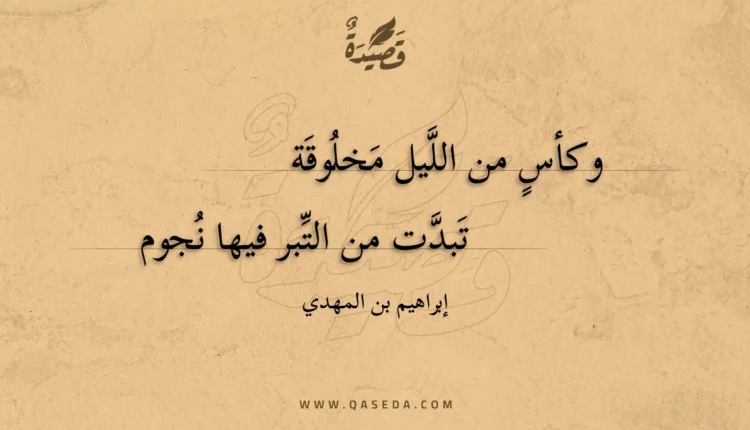 قَصِيدَةٌ
وكأسٍ من اللَّيل مَخلُوقَة
تَبدَّت من التِّبر فيها نُجوم
إبراهيم بن المهدي
WWW.QASEDA.COM